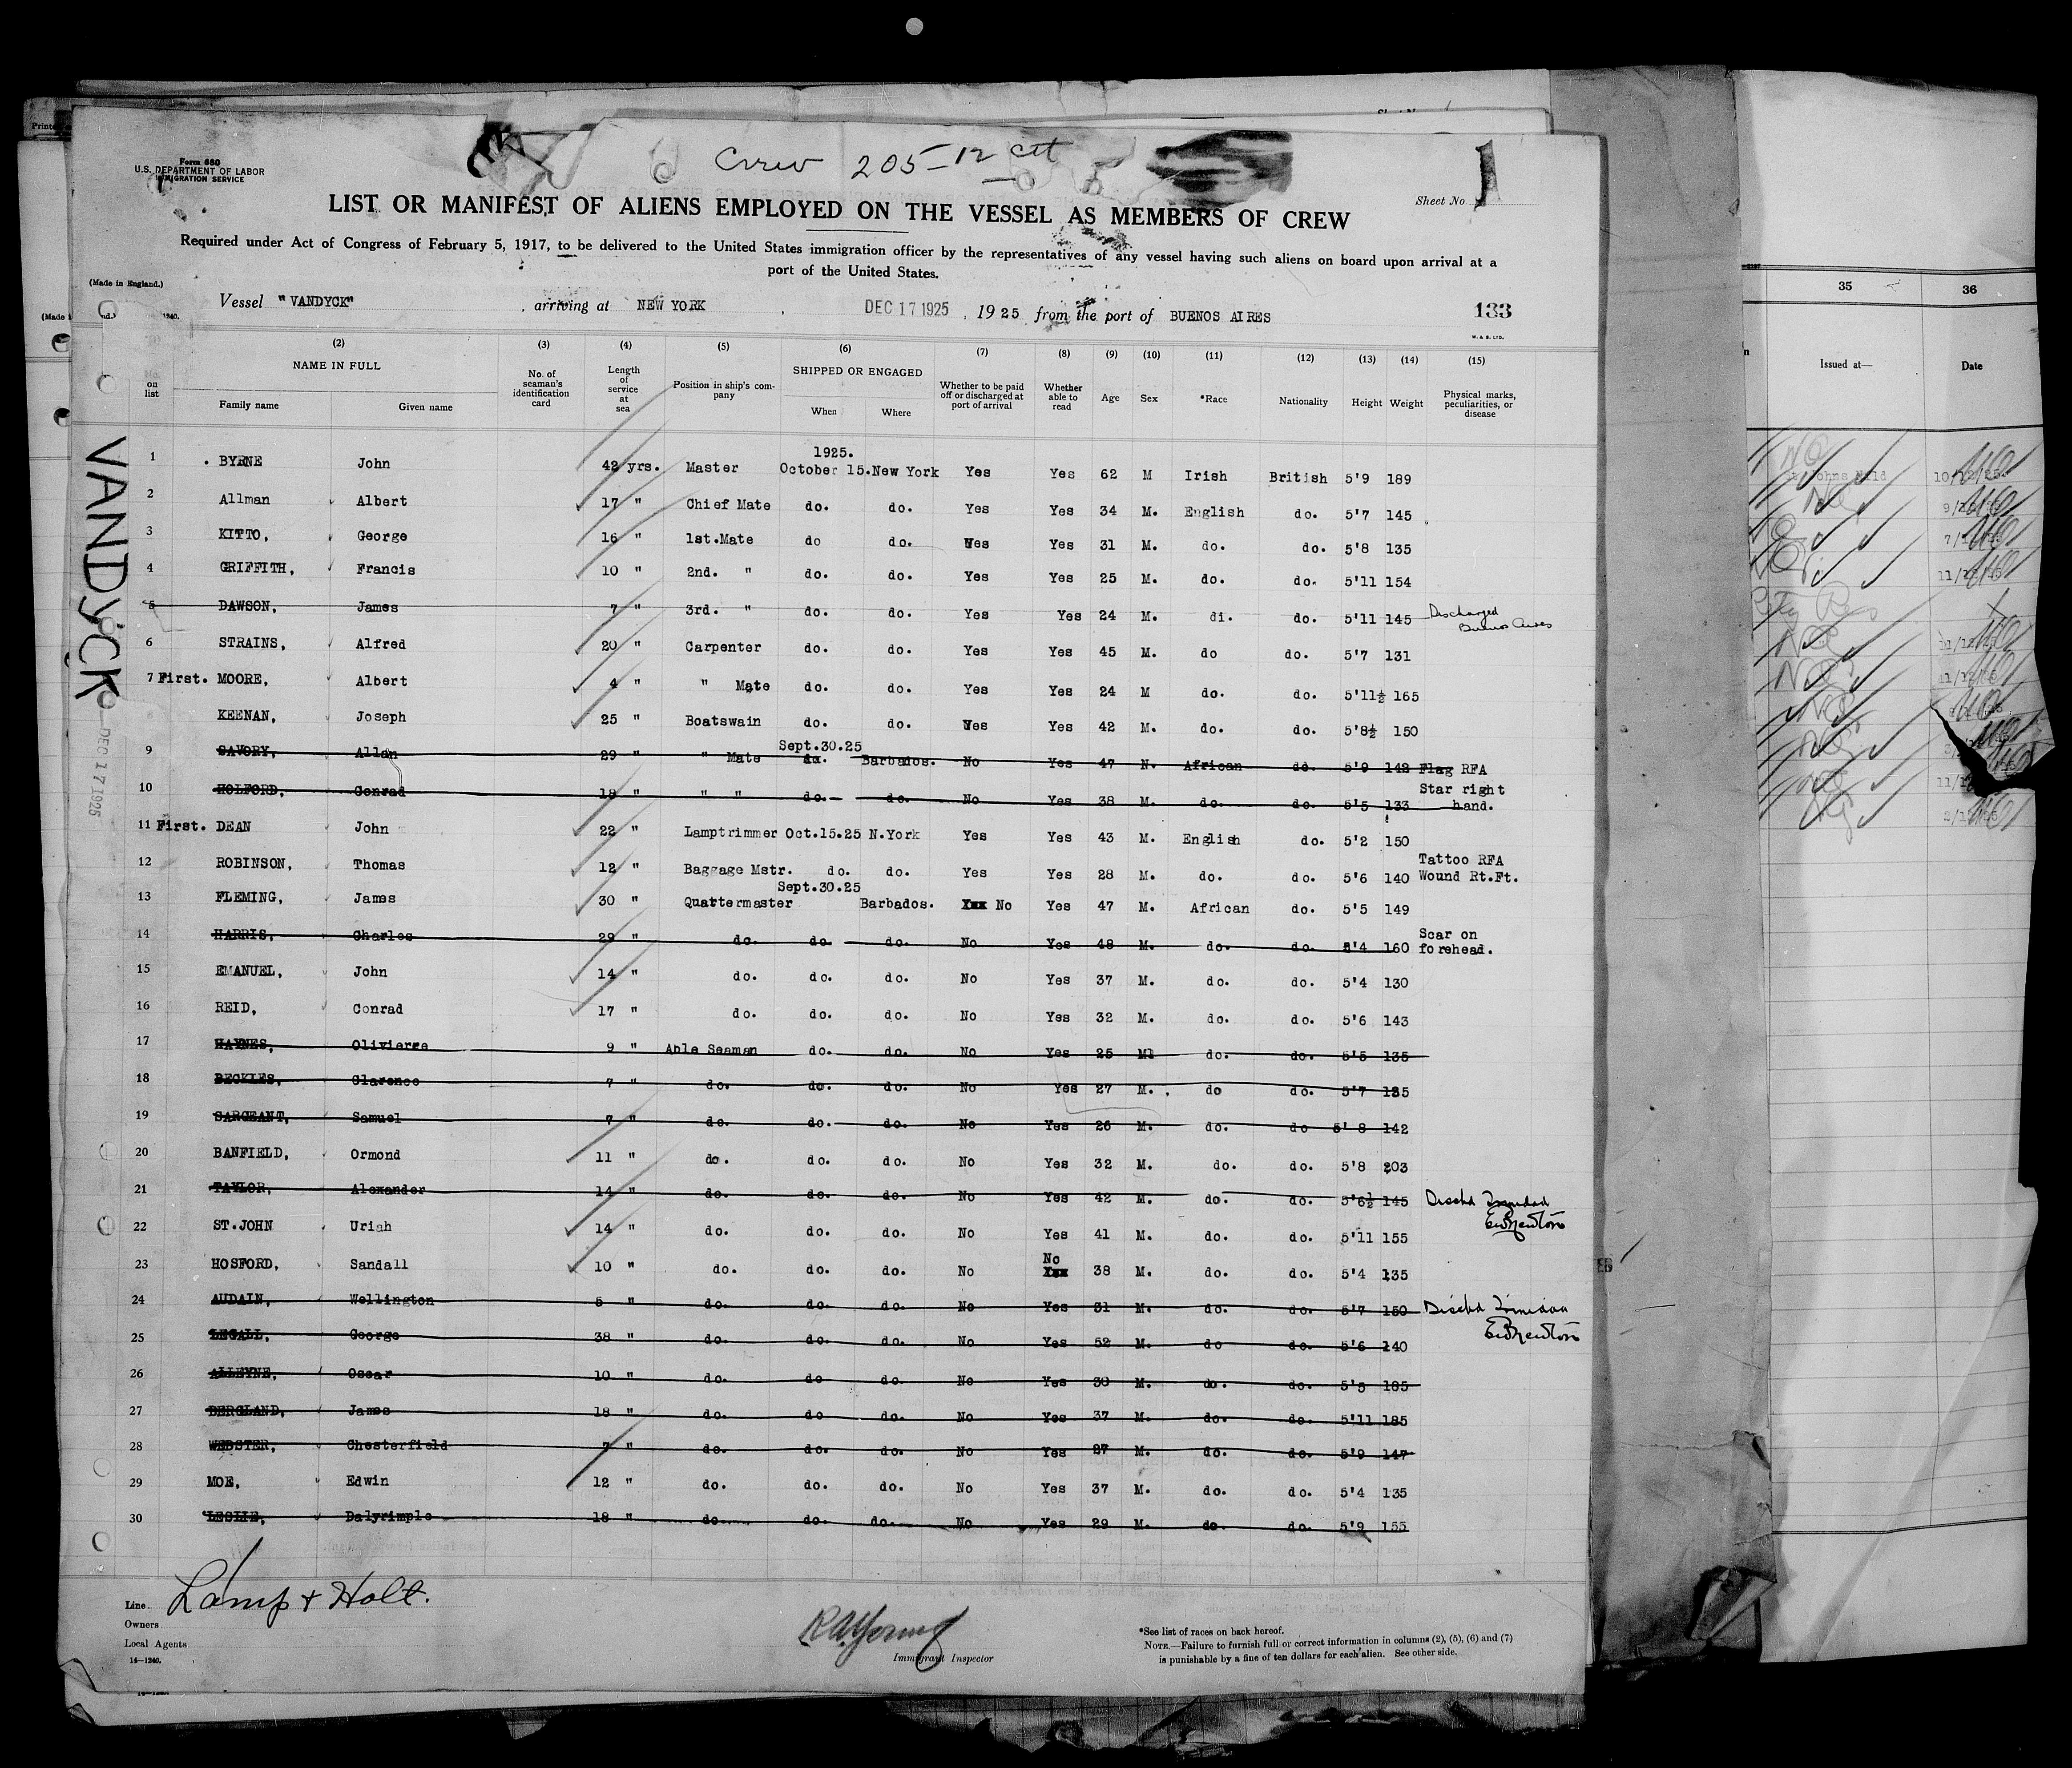 Form 680
U.S. DEPARTMENT OF LABOR
IMMIGRATION SERVICE
Crew 205-12
Sheet No. 1
LIST OR MANIFEST OF ALIENS EMPLOYED ON THE VESSEL AS MEMBERS OF CREW
Required under Act of Congress of February 5, 1917, to be delivered to the United States immigration officer by the representatives of any vessel having such aliens on board upon arrival at a
port of the United States.
(Made in England.)
Vessel "VANDYCK", arriving at NEW YORK, DEC 17 1925, 1925 from the port of BUENOS AIRES
133
W. & S. LTD.
(2) (3) (4) (5) (6) (7) (8) (9) (10) (11) (12) (13) (14) (15)
No. on list NAME IN FULL Family name Given name No. of seaman's identification card Length of service at sea Position in ship's company SHIPPED OR ENGAGED When Where Whether to be paid off or discharged at port of arrival Whether able to read Age Sex *Race Nationality Height Weight Physical marks, peculiarities, or disease
1925.
1 BYRNE John 42 yrs. Master October 15. New York Yes Yes 62 M Irish British 5'9 189
2 Allman Albert 17 " Chief Mate do. do. Yes Yes 34 M. English do. 5'7 145
3 KITTO, George 16 " 1st.Mate do do. Yes Yes 31 M. do. do. 5'8 135
4 GRIFFITH, Francis 10 " 2nd. " do. do. Yes Yes 25 M. do. do. 5'11 154
5 DAWSON, James 7 " 3rd. " do. do. Yes Yes 24 M. di. do. 5'11 145 Discharged Buenos Aires
6 STRAINS, Alfred 20 " Carpenter do. do. Yes Yes 45 M. do do. 5'7 131
7 First. MOORE, Albert 4 " " Mate do. do. Yes Yes 24 M do. do. 5'11½ 165
KEENAN, Joseph 25 " Boatswain do. do. Yes Yes 42 M. do. do. 5'8½ 150
9 SAVORY, Allan 29 " " Mate Sept.30.25 do. Barbados. No Yes 47 N. African do. 5'9 142 Flag RFA
10 HOLFORD, Conrad 18 " " " do. do. No Yes 38 M. do. do. 5'5 133 Star right hand.
11 First. DEAN John 22 " Lamptrimmer Oct.15.25 N.York Yes Yes 43 M. English do. 5'2 150
12 ROBINSON, Thomas 12 " Baggage Mstr. do. do. Yes Yes 28 M. do. do. 5'6 140 Tattoo RFA Wound Rt.Ft.
13 FLEMING, James 30 " Quattermaster Sept.30.25 Barbados. No Yes 47 M. African do. 5'5 149
14 HARRIS, Charles 29 " do. do. do. No Yes 48 M. do. do. 5'4 160 Scar on forehead.
15 EMANUEL, John 14 " do. do. do. No Yes 37 M. do. do. 5'4 130
16 REID, Conrad 17 " do. do. do. No Yes 32 M. do. do. 5'6 143
17 HAYNES, Olivierre 9 " Able Seaman do. do. No Yes 25 Ml do. do. 5'5 135
18 BECKLES, Clarence 7 " do. do. do. No Yes 27 M. do do. 5'7 135
19 SARGEANT, Samuel 7 " do. do. do. No Yes 26 M. do. do 5'8 142
20 BANFIELD, Ormond 11 " do. do. do. No Yes 32 M. do. do. 5'8 203
21 TAYLOR, Alexander 14 " do. do. do. No Yes 42 M. do. do. 5'6½ 145 Dischd Trinidad
22 ST.JOHN Uriah 14 " do. do. do. No Yes 41 M. do. do. 5'11 155
23 HOSFORD, Sandall 10 " do. do. do. No No 38 M. do. do. 5'4 135
24 AUDAIN, Wellington 5 " do. do. do. No Yes 31 M. do. do. 5'7 150 Dischd Trinidad
25 LEGALL, George 38 " do. do. do. No Yes 52 M. do do. 5'6 140
26 ALLEYNE, Oscar 10 " do. do do. No Yes 30 M. do. do. 5'5 185
27 BERGLAND, James 18 " do. do do. No Yes 37 M. do. do. 5'11 185
28 WEBSTER, Chesterfield 7 " do. do. do. No Yes 27 M. do. do. 5'9 147
29 MOE, Edwin 12 " do. do. do. No Yes 37 M. do. do. 5'4 135
30 LESLIE, Dalyrimple 18 " do. do. do. No Yes 29 M. do. do. 5'9 155
VANDYCK
DEC 17 1925
Line Lamp & Holt.
Owners
Local Agents
14-1240.
Immigrant Inspector
*See list of races on back hereof.
NOTE.—Failure to furnish full or correct information in columns (2), (5), (6) and (7)
is punishable by a fine of ten dollars for each alien. See other side.
35 36
Issued at— Date